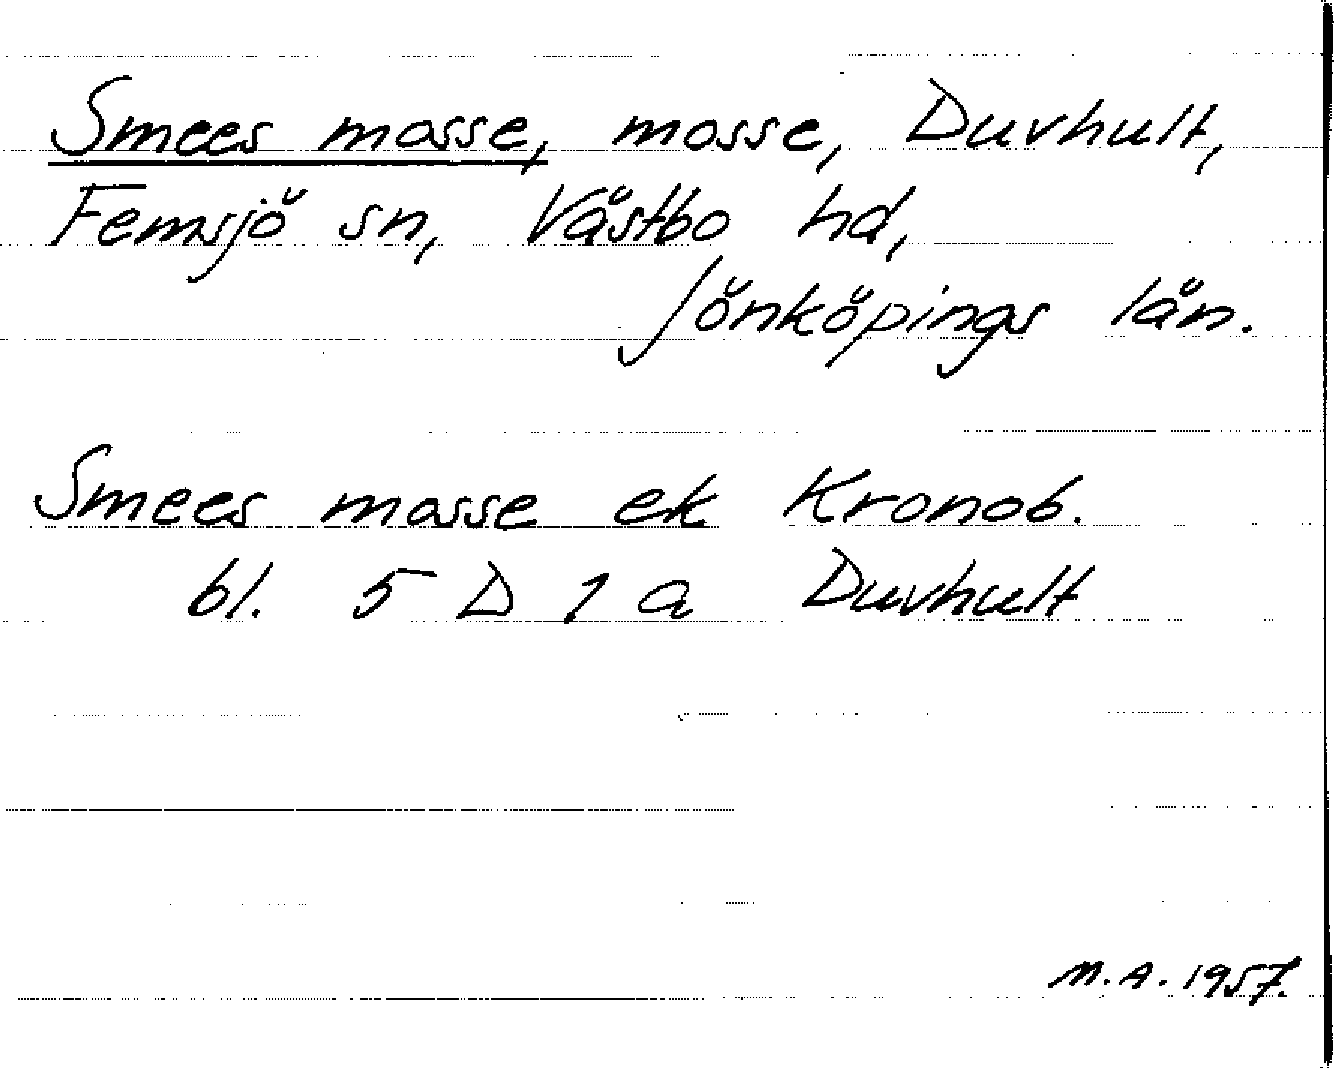 Smees mosse, mosse, Duvhult,
Femsjö sn, Västbo hd,
Jönköpings län.
Smees mosse ek Kronob.
bl. 5 D 1 a Duvhult
M.A. 1957.